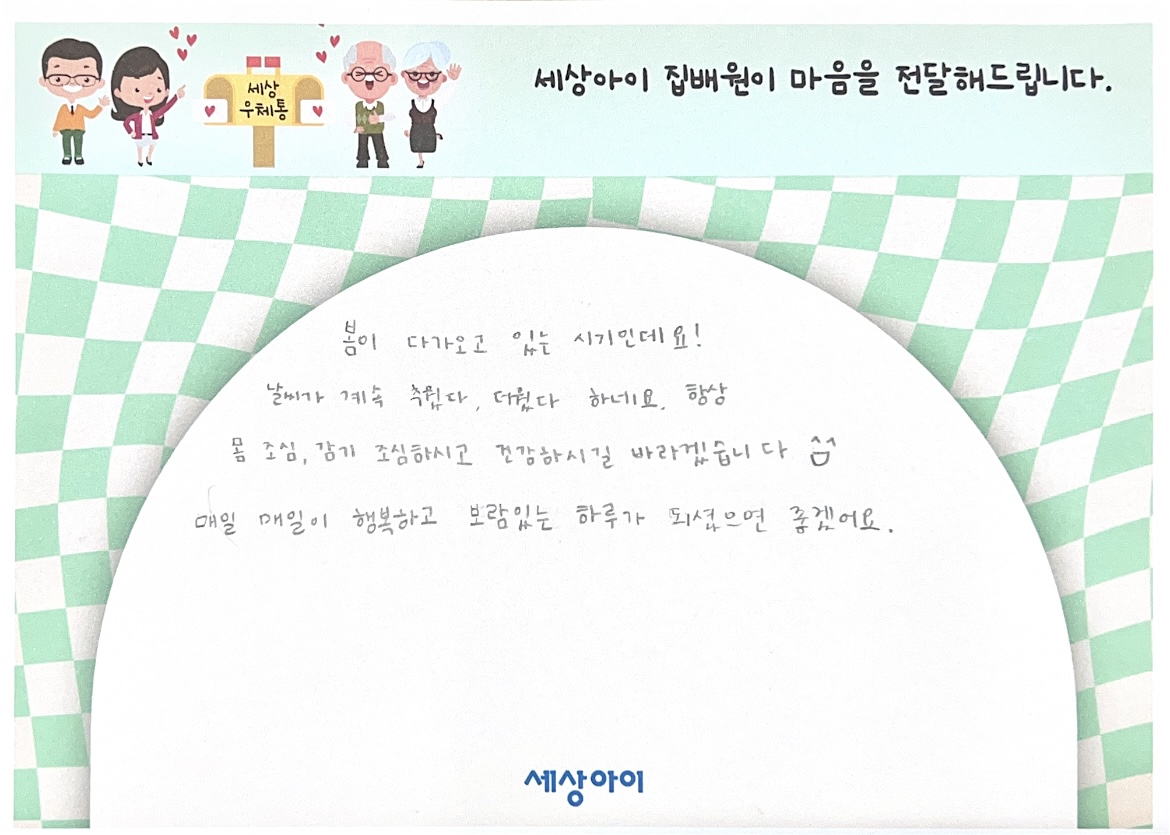 세상아이 집배원이 마음을 전달해드립니다.
세상
우체통
봄이 다가오고 있는 시기인데요!
날씨가 계속 추웠다, 더웠다 하네요. 항상
몸 조심, 감기 조심하시고 건강하시길 바라겠습니다
매일 매일이 행복하고 보람있는 하루가 되셨으면 좋겠어요.
세상아이